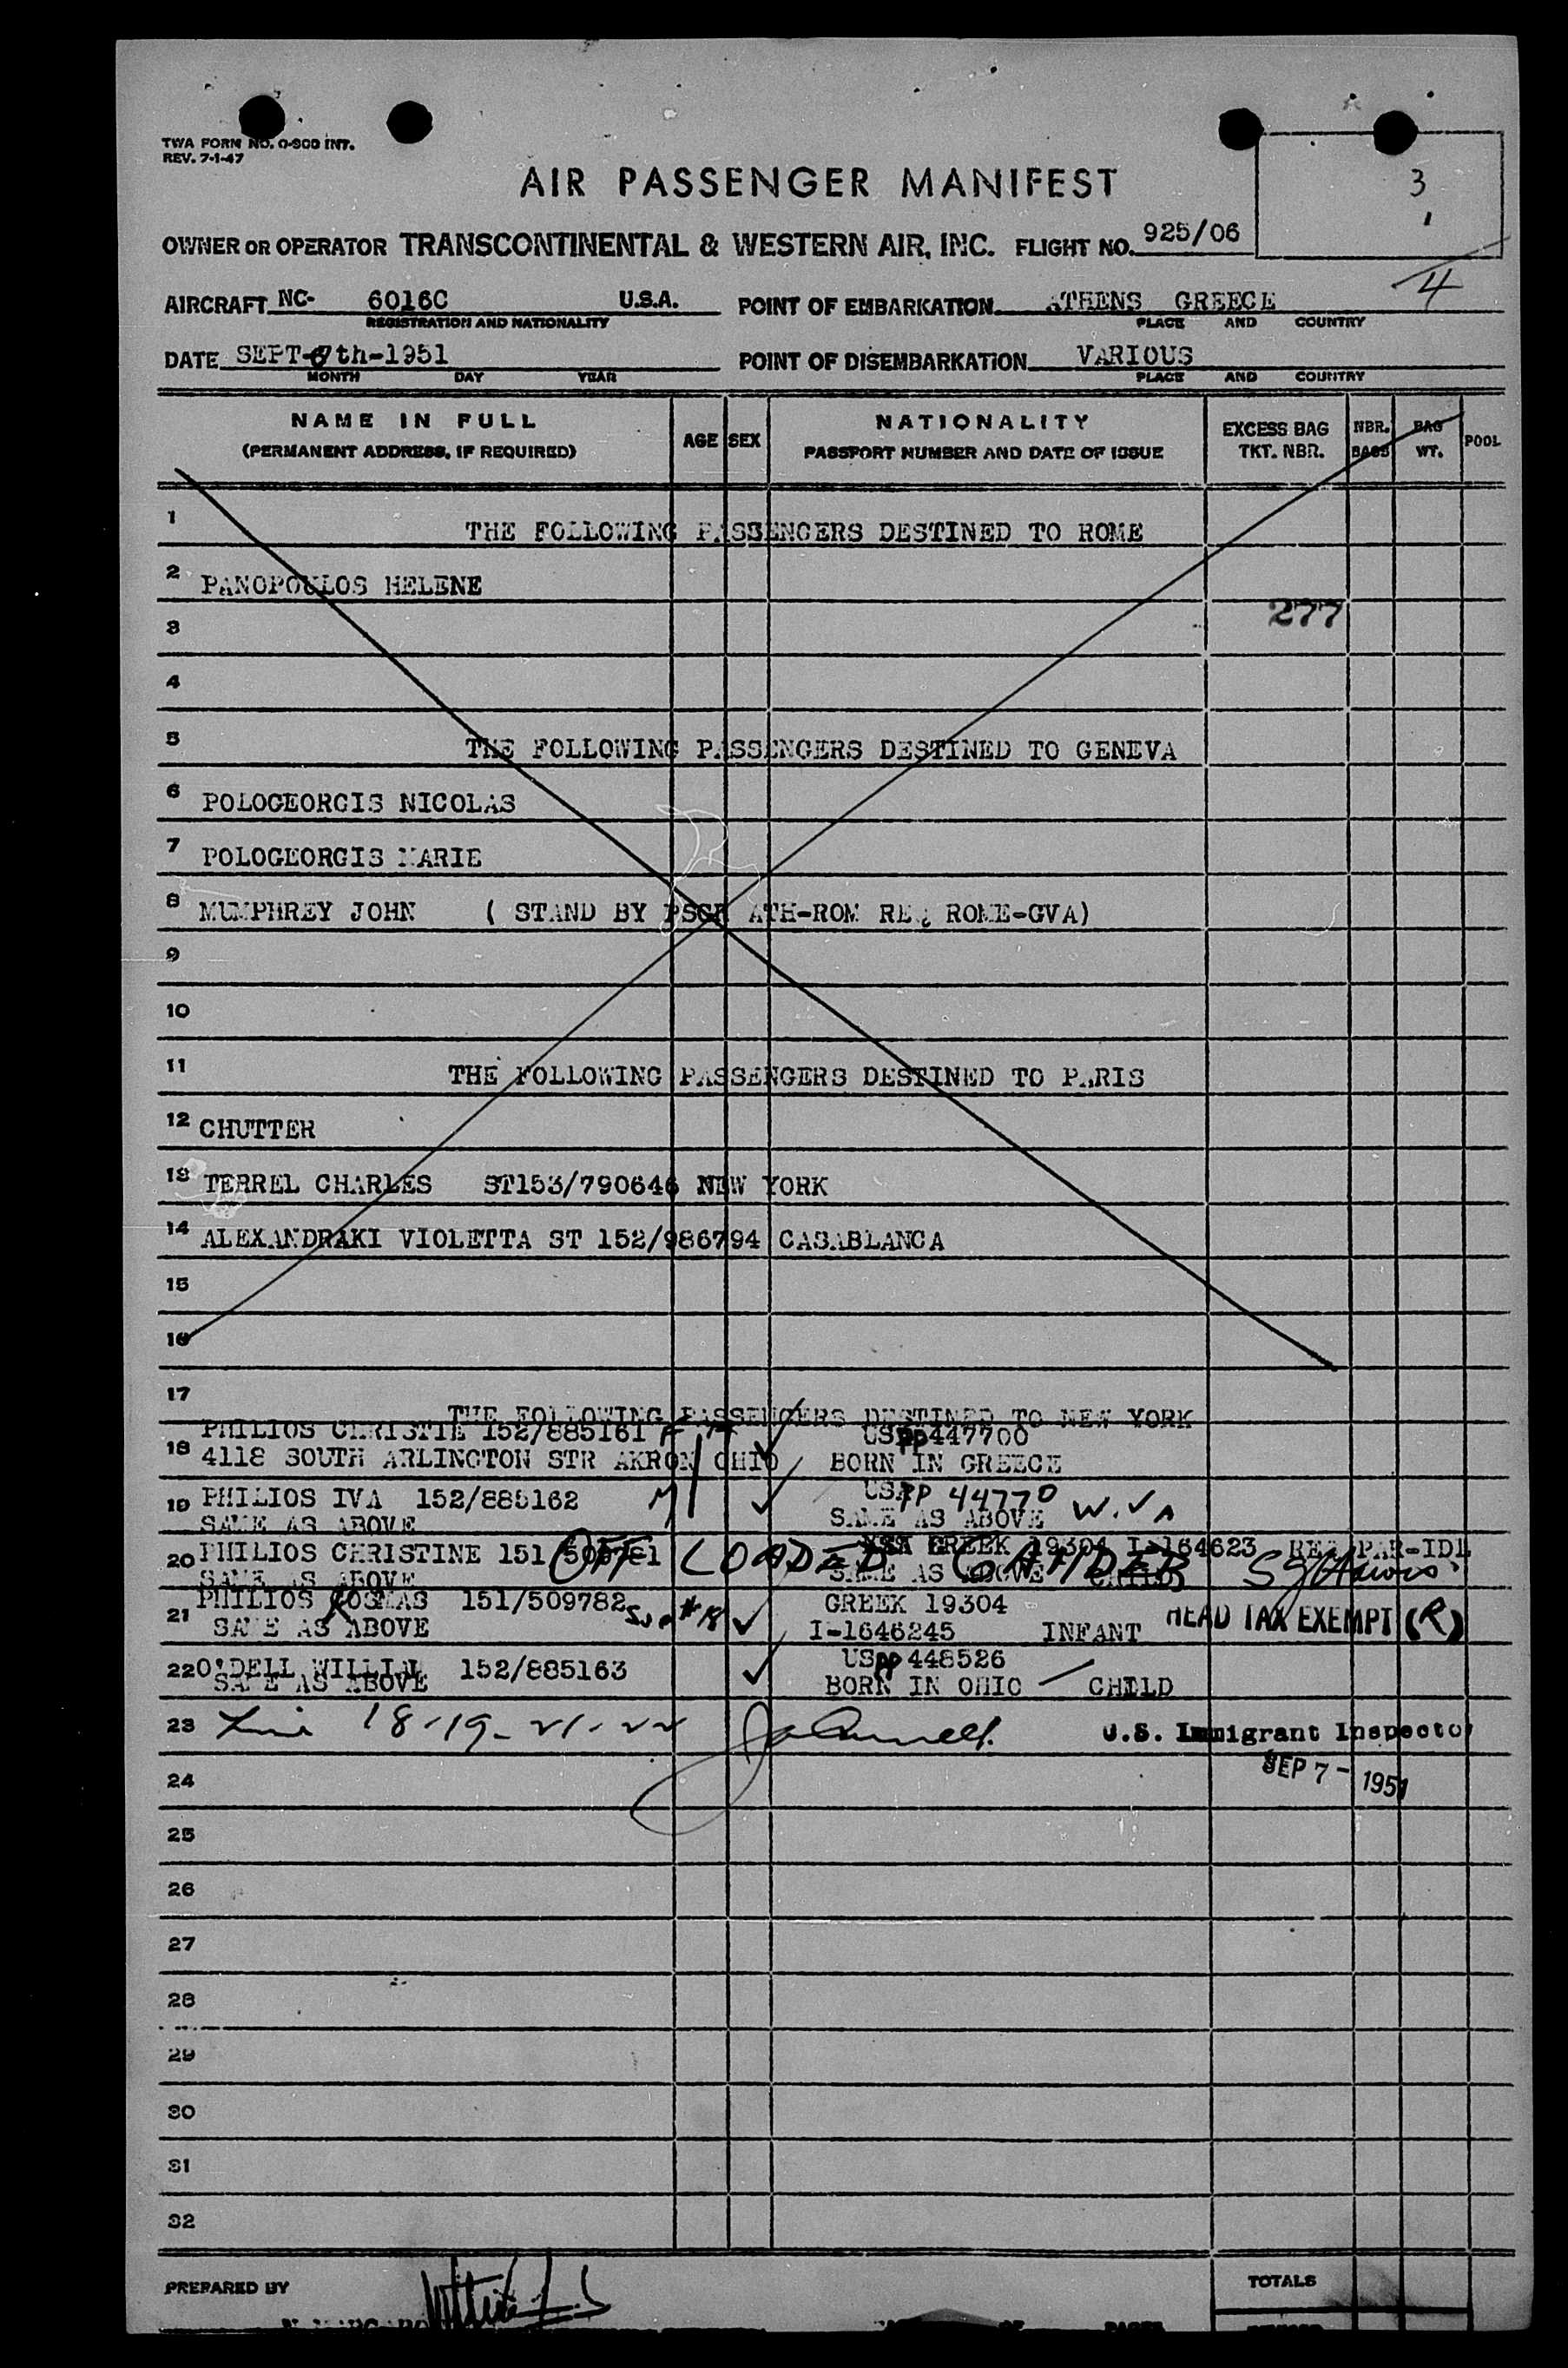 TWA FORM NO. O-900 INT.
REV. 7-1-47
AIR PASSENGER MANIFEST
3
1
OWNER OR OPERATOR TRANSCONTINENTAL & WESTERN AIR, INC. FLIGHT NO. 925/06
4
AIRCRAFT NC- 6016C U.S.A. POINT OF EMBARKATION ATHENS GREECE
REGISTRATION AND NATIONALITY PLACE AND COUNTRY
DATE SEPT-6th-1951 POINT OF DISEMBARKATION VARIOUS
MONTH DAY YEAR PLACE AND COUNTRY
NAME IN FULL AGE SEX NATIONALITY EXCESS BAG NBR. BAG POOL
(PERMANENT ADDRESS, IF REQUIRED) PASSPORT NUMBER AND DATE OF ISSUE TKT. NBR. BAGS WT.
1 THE FOLLOWING PASSENGERS DESTINED TO ROME
2 PANOPOULOS HELENE
3 277
4
5 THE FOLLOWING PASSENGERS DESTINED TO GENEVA
6 POLOGEORGIS NICOLAS
7 POLOGEORGIS MARIE
8 MUMPHREY JOHN ( STAND BY PSGR ATH-ROM REQ ROME-GVA)
9
10
11 THE FOLLOWING PASSENGERS DESTINED TO PARIS
12 CHUTTER
13 TERREL CHARLES ST153/790646 NEW YORK
14 ALEXANDRAKI VIOLETTA ST 152/986794 CASABLANCA
15
16
17 THE FOLLOWING PASSENGERS DESTINED TO NEW YORK
PHILIOS CHRISTIE 152/885161 F USPP 447700
18 4118 SOUTH ARLINGTON STR AKRON OHIO BORN IN GREECE
19 PHILIOS IVA 152/885162 M USPP 44770 W.VA
SAME AS ABOVE SAME AS ABOVE
20 PHILIOS CHRISTINE 151 OFF LOADED GANDER GREEK 19304 I-164623 REQ PAR-IDL
SAME AS ABOVE SAME AS ABOVE CHILD
21 PHILIOS KOSMAS 151/509782 #18 GREEK 19304
SAME AS ABOVE I-1646245 INFANT HEAD TAX EXEMPT (R)
22 O'DELL WILLIAM 152/885163 USPP 448526
SAME AS ABOVE BORN IN OHIO CHILD
23 Line 18-19-21-22 U.S. Immigrant Inspector
24 SEP 7 - 1951
25
26
27
28
29
30
31
32
PREPARED BY TOTALS
OF PAGES